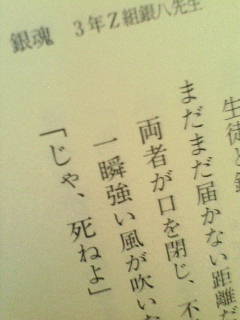 銀魂 3年Z組銀八先生
生徒と銀
まだまだ届かない距離だ
両者が口を閉じ、不
一瞬強い風が吹いた
「じゃ、死ねよ」